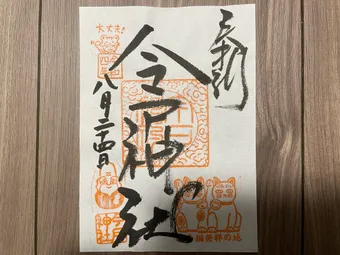 奉拝
今戸神社
八月二十四日
大丈夫!
猫発祥の地